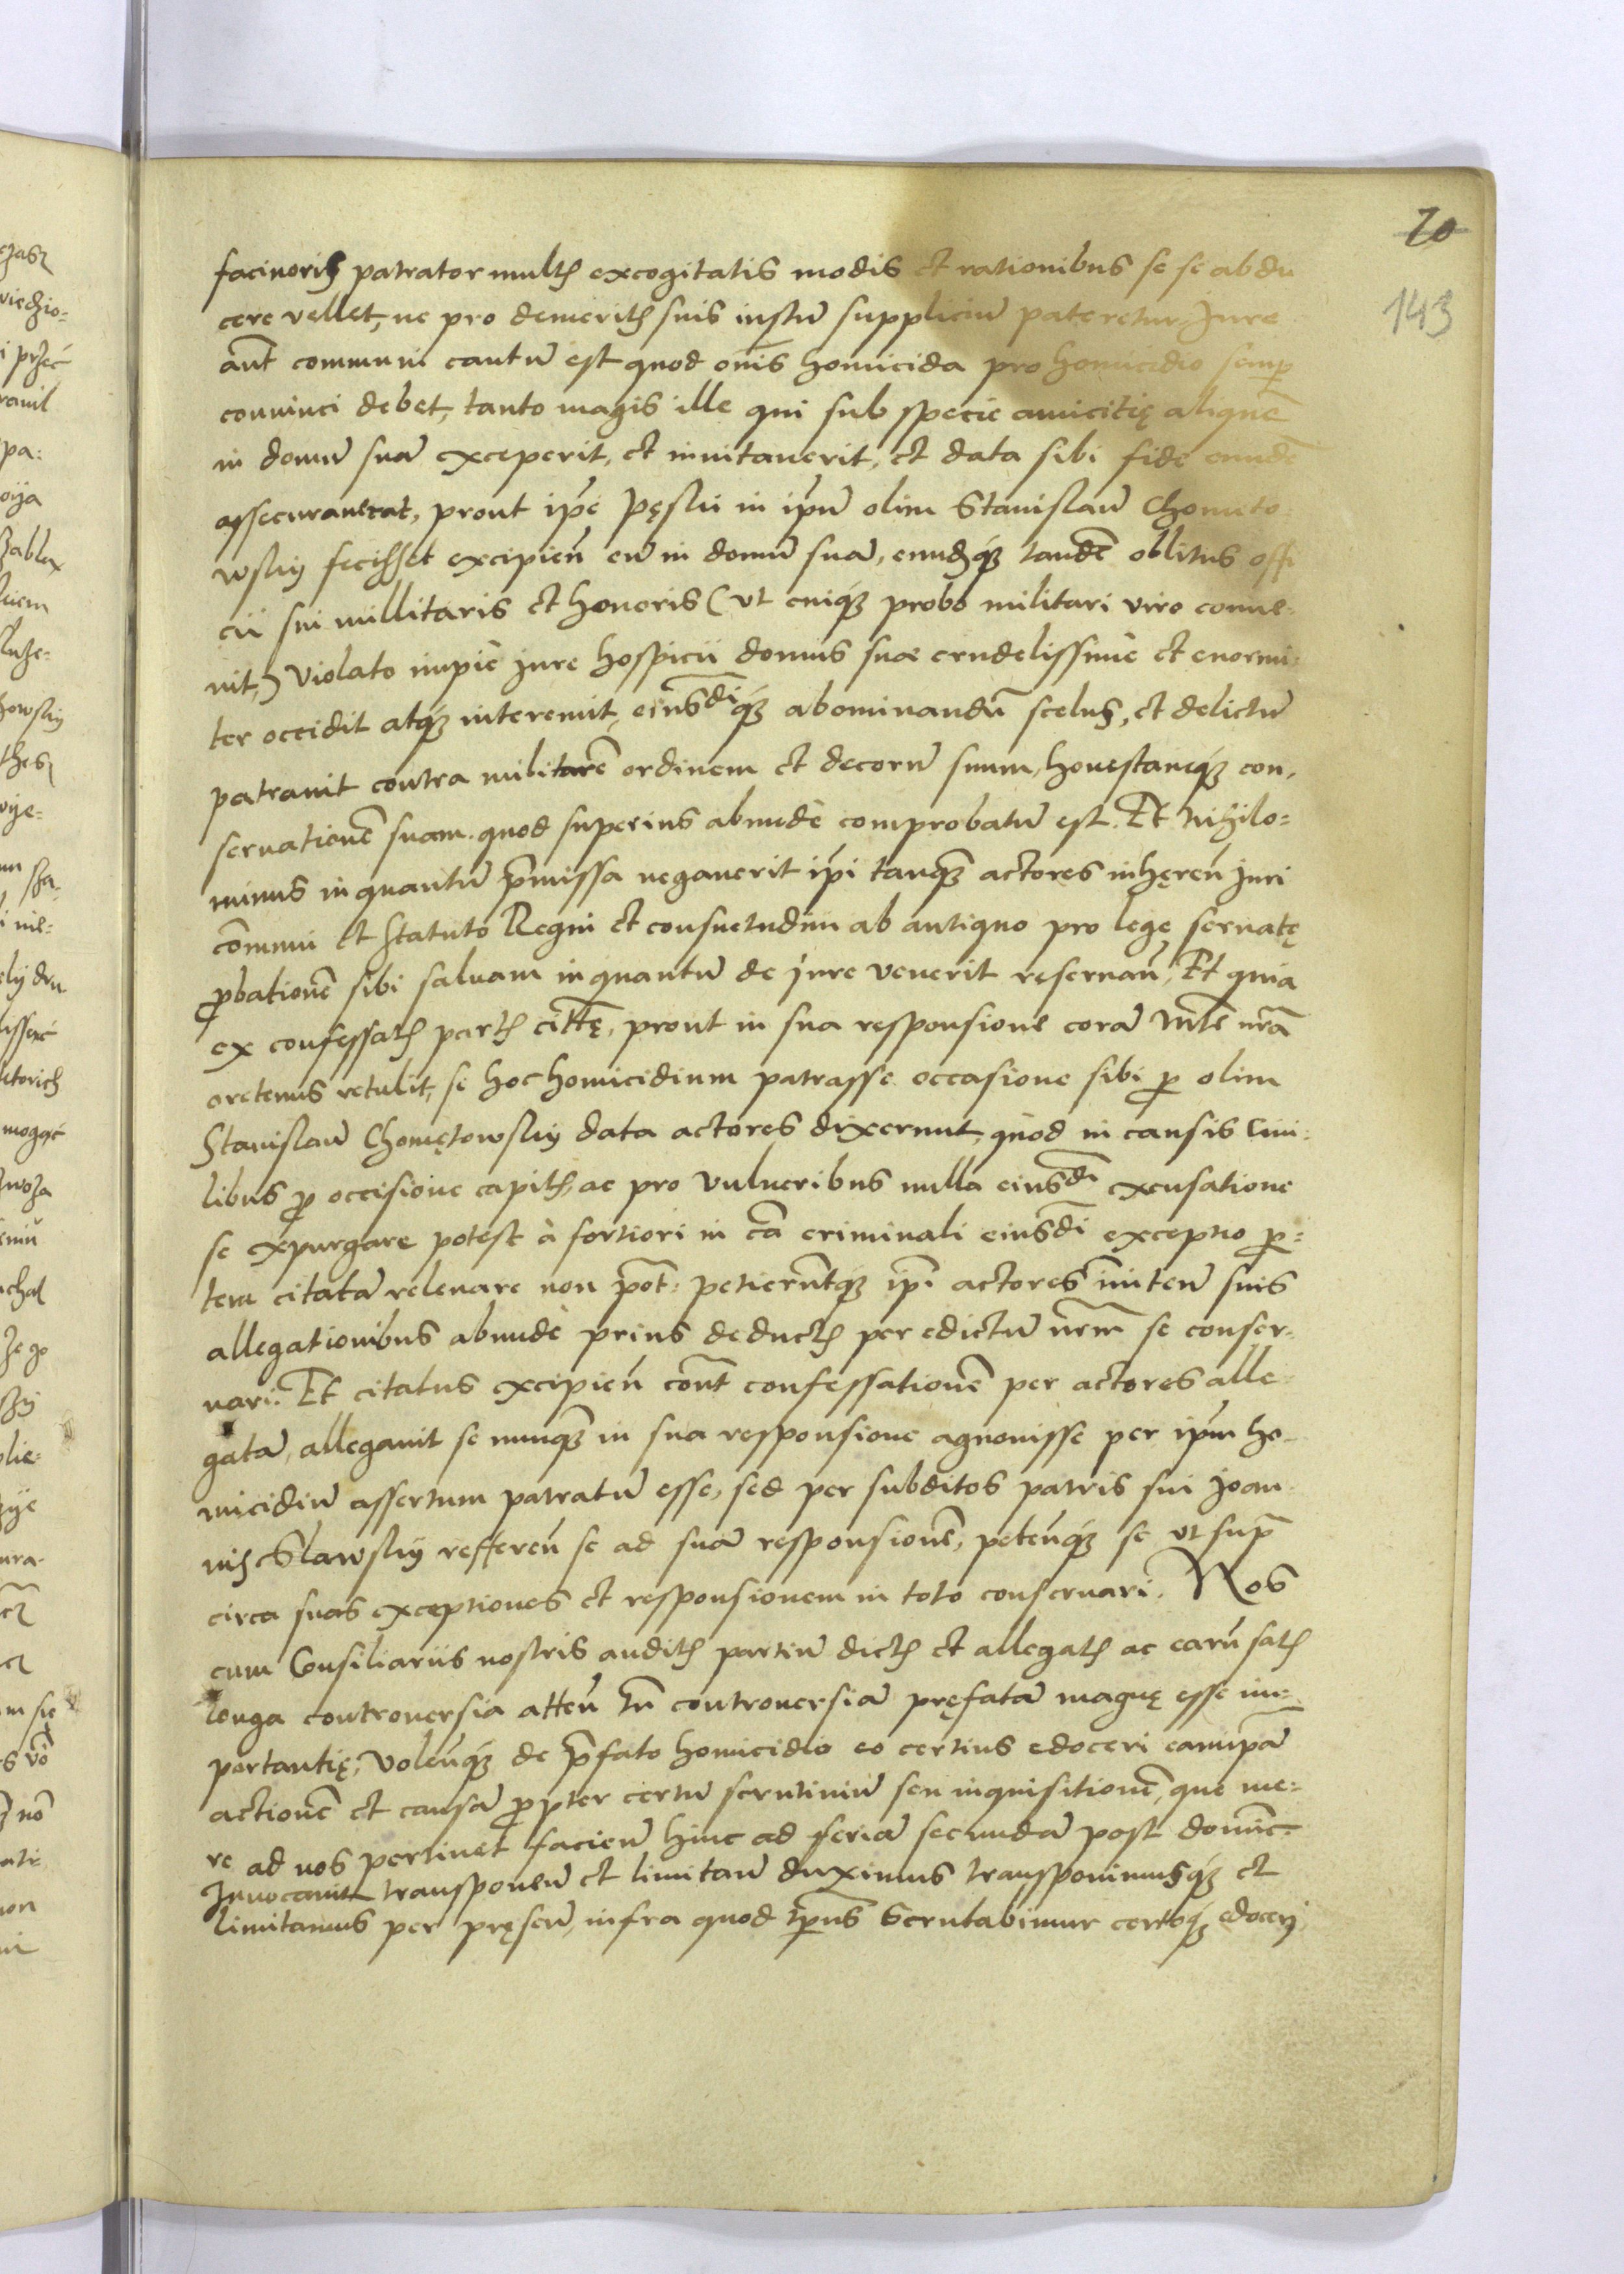 70
143
facinoris patrator multis excogitatis modis et rationibus se se abdu
cere vellet, ne pro demeritis suis iustũ suppliciũ pateretur, Jure
aũt communi cautũ est quod oms̃ homicida pro homicidio semp
conuinci debet, tanto magis ille qui sub specie amicitię aliquẽ
in domũ suã exceperit, et inuitauerit, et data sibi fide eundẽ
assecurauerat, prout ip̃e Pęski in ip̃m olim Stanislaũ Chometo-
wskij fecisset excipieñ eũ in domũ suã, eundq̃ꝫ tandẽ oblitus offi
cii sui millitaris et honoris (ut cuiqꝫ probo militari viro conue-
nit,) violato impiè jure hospicii domus suæ crudelissimè et enormi-
ter occidit atqꝫ interemit, eiusdiqꝫ abominandũ scelus, et delictũ
patrauit contra militarẽ ordinem et decorũ suum, honestamqꝫ con-
seruationẽ suam. quod superius abundè comprobatũ est. Et nihilo-
minus in quantũ p̃missa negauerit ip̃i tanqꝫ actores inhęreñ juri
cõmuni et statuto Regni et consuetudini ab antiquo pro lege seruatę
ꝓbationẽ sibi saluam in quantũ de jure venerit reseruañ, Et quia
ex confessatis partis cittę, prout in sua responsione corã Mte nrã
oretenus retulit, se hoc homicidium patrasse occasione sibi ꝑ olim
Stanislaũ Chomętowskij data actores dixerunt, quod in causis Ciui-
libus ꝓ occisione capitis, ac pro vulneribus nulla eiusdi excusatione
se expurgare potest à fortiori in cã criminali eiusdi exceptio ꝑ-
tem citatã releuare non põt: petierũtqꝫ ip̃i actores inniteñ suis
allegationibus abundè prius deductis per edictũ nrm̃ se conser-
uari. Et citatus excipieñ cont̃ confessationẽ per actores alle-
gatã, allegauit se nunqꝫ in sua responsione agnouisse per ip̃m ho-
micidiũ assertum patratũ esse, sed per subditos patris sui Joan-
nis Slawskij refereñ se ad suã responsionẽ, peteñqꝫ se ut supᷓ
circa suas exceptiones et responsionem in toto conseruari. Nos
cum Consiliariis nostris auditis partiũ dictis et allegatis ac earũ satis
longa controuersia atteñ tñ controuersiã pręfatã magnę esse im-
portantię, voleñqꝫ de p̃fato homicidio eo certius edoceri eamip̃ã
actionẽ et causã ꝓpter certũ scrutiniũ seu inquisitionẽ, que me-
re ad nos pertinet facieñ hinc ad feriã secundã post dominic̃
Inuocauit transponeñ et limitañ duximus transponimusqꝫ et
limitamus per pręseñ, infra quod tp̃us scrutabimur certoqꝫ edoceri